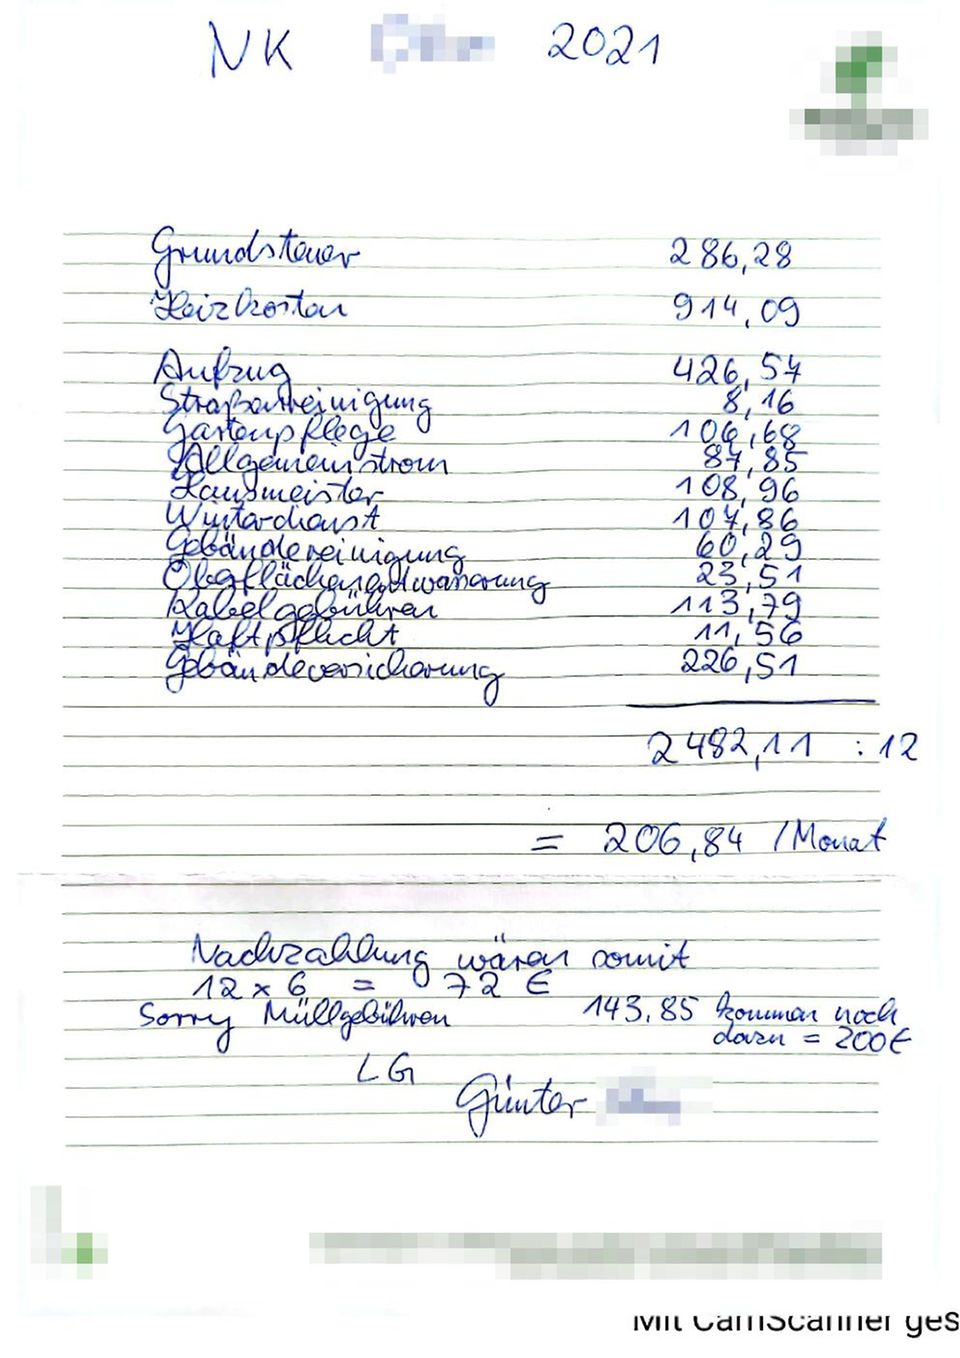 NK 2021
Grundsteuer 286,28
Heizkosten 914,09
Aufzug 426,57
Straßenreinigung 8,16
Gartenpflege 106,68
Allgemeinstrom 87,85
Hausmeister 108,96
Winterdienst 107,86
Gebäudereinigung 60,29
Oberflächenentwässerung 23,51
Kabelgebühren 113,79
Haftpflicht 11,56
Gebäudeversicherung 226,51
2482,11 : 12
= 206,84 /Monat
Nachzahlung wären somit
12 x 6 = 72 €
Sorry Müllgebühren 143.85 kommen noch
dazu = 200€
LG
Günter
Mit CamScanner ges